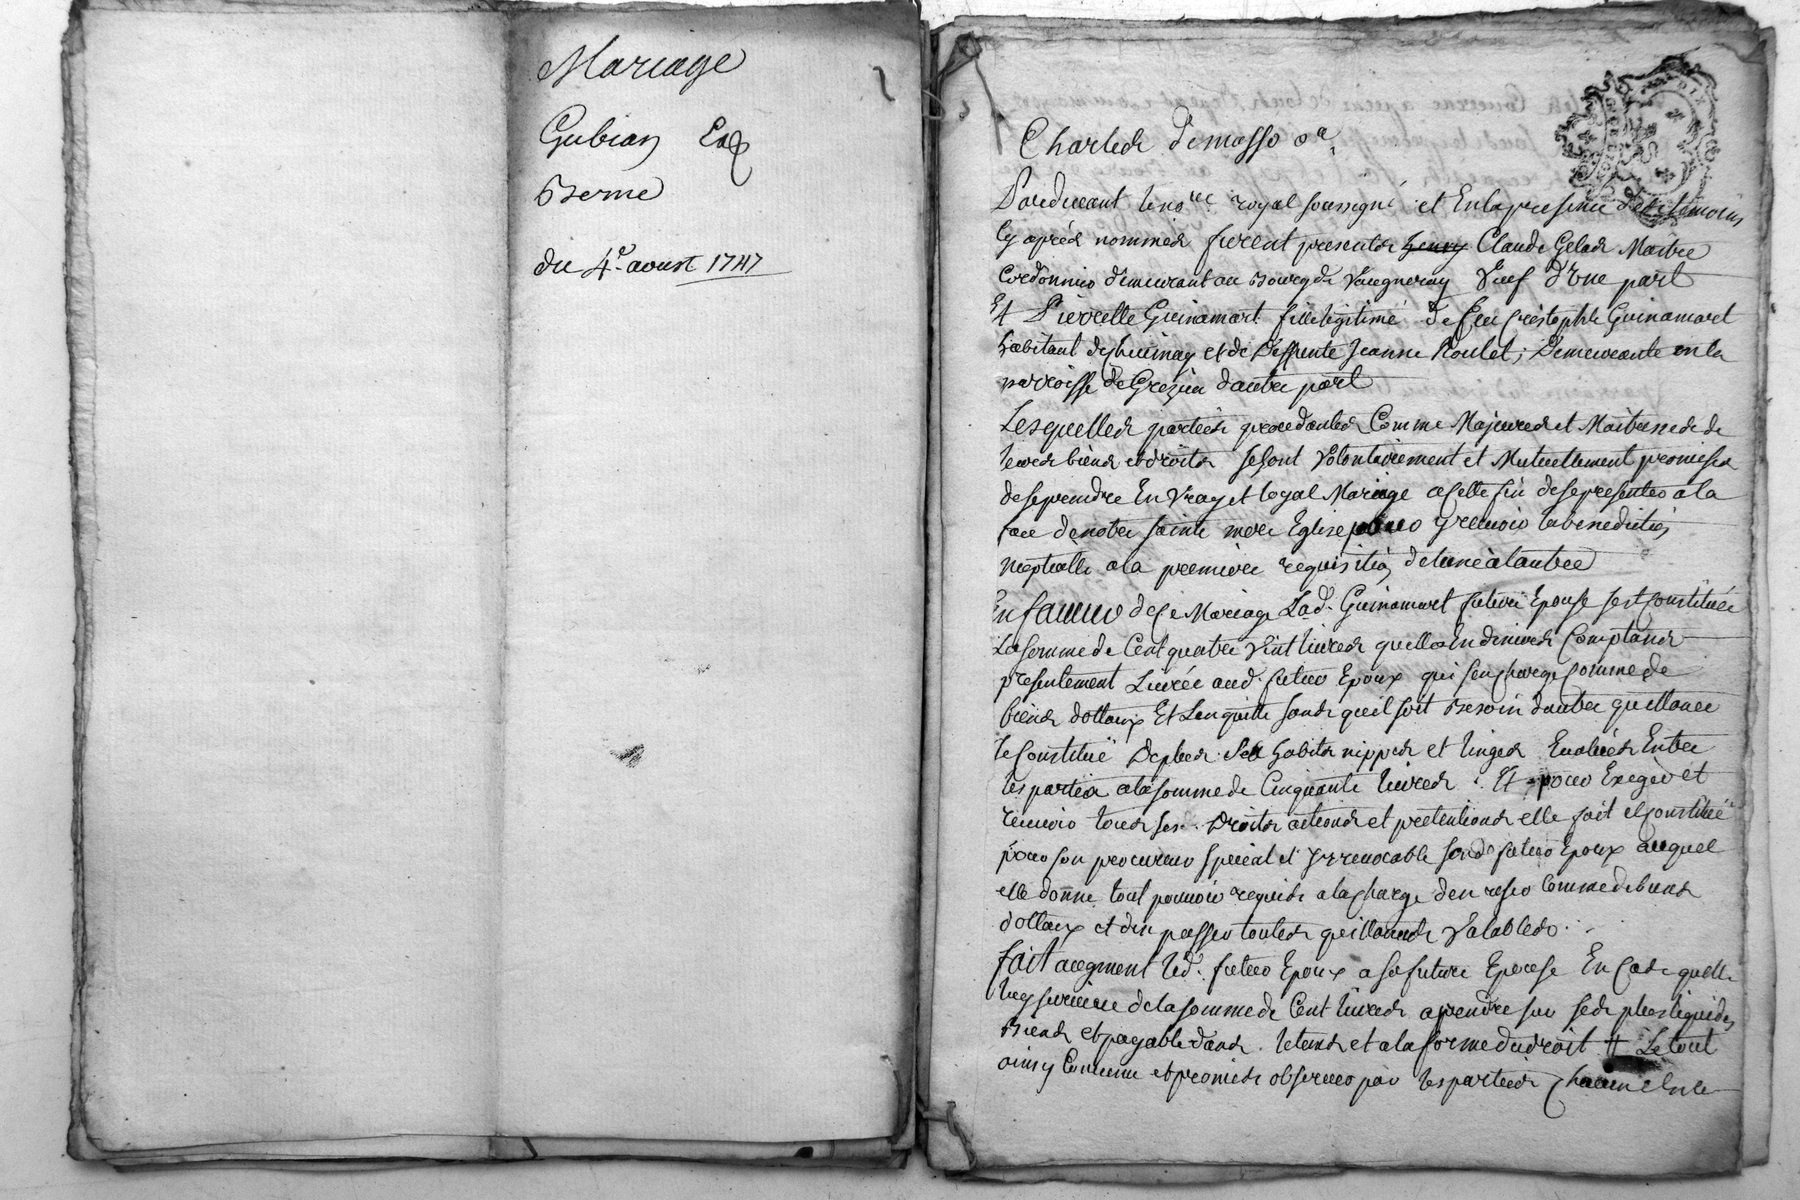 Mariage
Gubian Et
Berne
du 4e. aoust 1747
Charles Demasso
Pardevant le nore. royal soussigné et En la presence des temoins
Cy aprés nommes furent presents Claude Gelas Maitre
Cordonnier demeurant au Bourg de Vaugneray Veuf d'Une part
Et Pierrette Guinamart fille legitime de feu Cristophle Guinamart
habitant de et de Deffunte Jeanne Poulet, Demeurante en la
parroisse de Grezieu d'autre part
Lesquelles parties procedantes Comme Majeures et Maitresses de
leurs biens et droits se sont Volontairement et Mutuellement promises
de se prendre En Vray et loyal Mariage a Cette fin de se presenter a la
face de notre sainte mere Eglise pour y recevoir la benediction
nuptialle a la premiere requisition de lune à lautre
En faveur de Ce Mariage Lad. Guinamart future Epouse sest Constituée
la somme de Cent quatre Vint livres quelle a En deniers Comptans
presentement Livrée aud. futur Epoux qui sen Charge Comme de
biens dottaux Et Lenquitte sans quil soit Besoin dautre quittance
se Constitue De plus Ses habits nippes et linges Evalués Entre
les parties a la somme de Cinquante livres. Et pour Exiger et
recevoir tous ses Droits actions et pretentions elle fait et Constitue
pour son procureur special et Irrevocable sond futur Epoux auquel
elle donne tout pouvoir requis a la Charge den user Comme de biens
dottaux et den passer toutes quittances Valables.
fait augment led. futur Epoux a sa future Epouse En Cas quelle
luy survive de la somme de Cent livres a prendre sur ses plus liquides
Biens et payable dans le tems et a la forme du droit Le tout
ainsy Convenu et promis observer par les parties Chacune En le